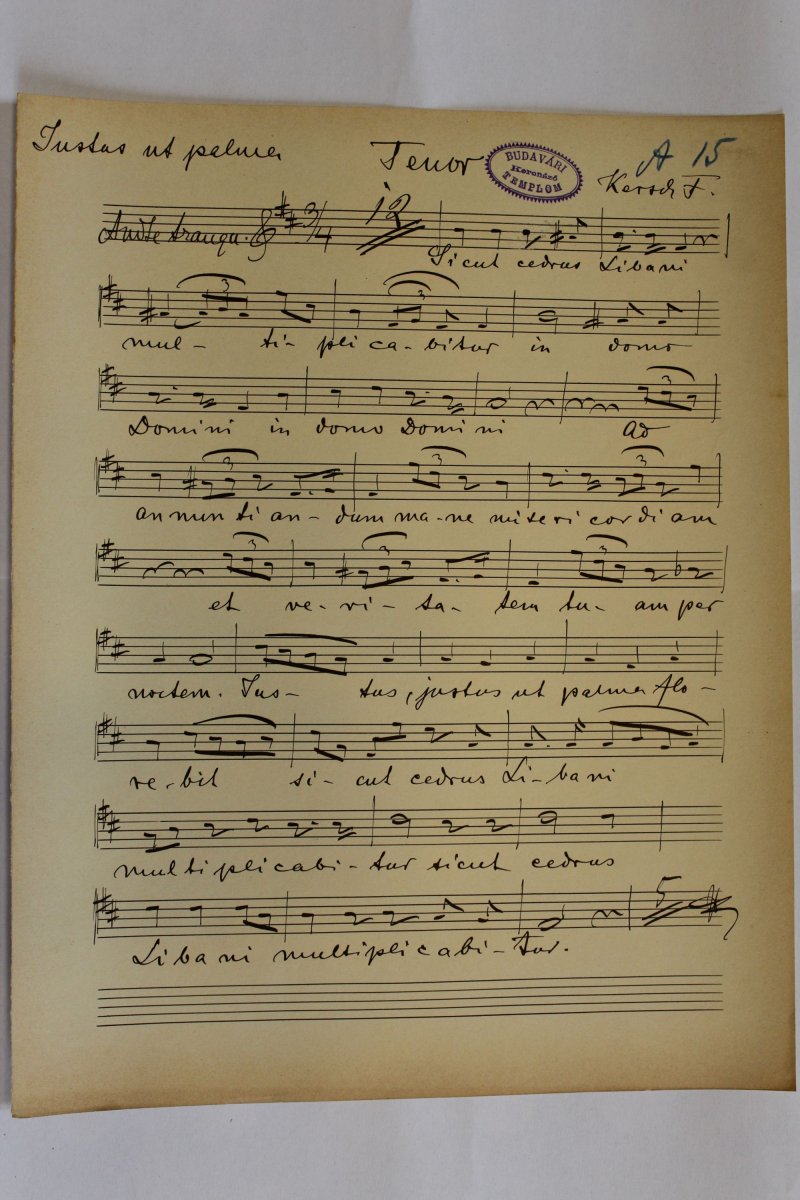 Justus ut palma Tenor BUDAVÁRI Koronázó TEMPLOM A 15
Kersch F.
Andte tranqu. 3/4 12
Sicut cedrus Libani
3 3
mul - ti - pli ca - bitur in domo
3
Domini in domo Domini Ad
3 3 3
annuntian - dum ma - ne misericordiam
3 3 3
et ve - ri - ta - tem tu - am per
noctem. Jus - tus, justus ut palma flo -
re - bit si - cut cedrus Li - bani
multiplicabi - tur sicut cedrus
5
Libani multiplicabi - tur.